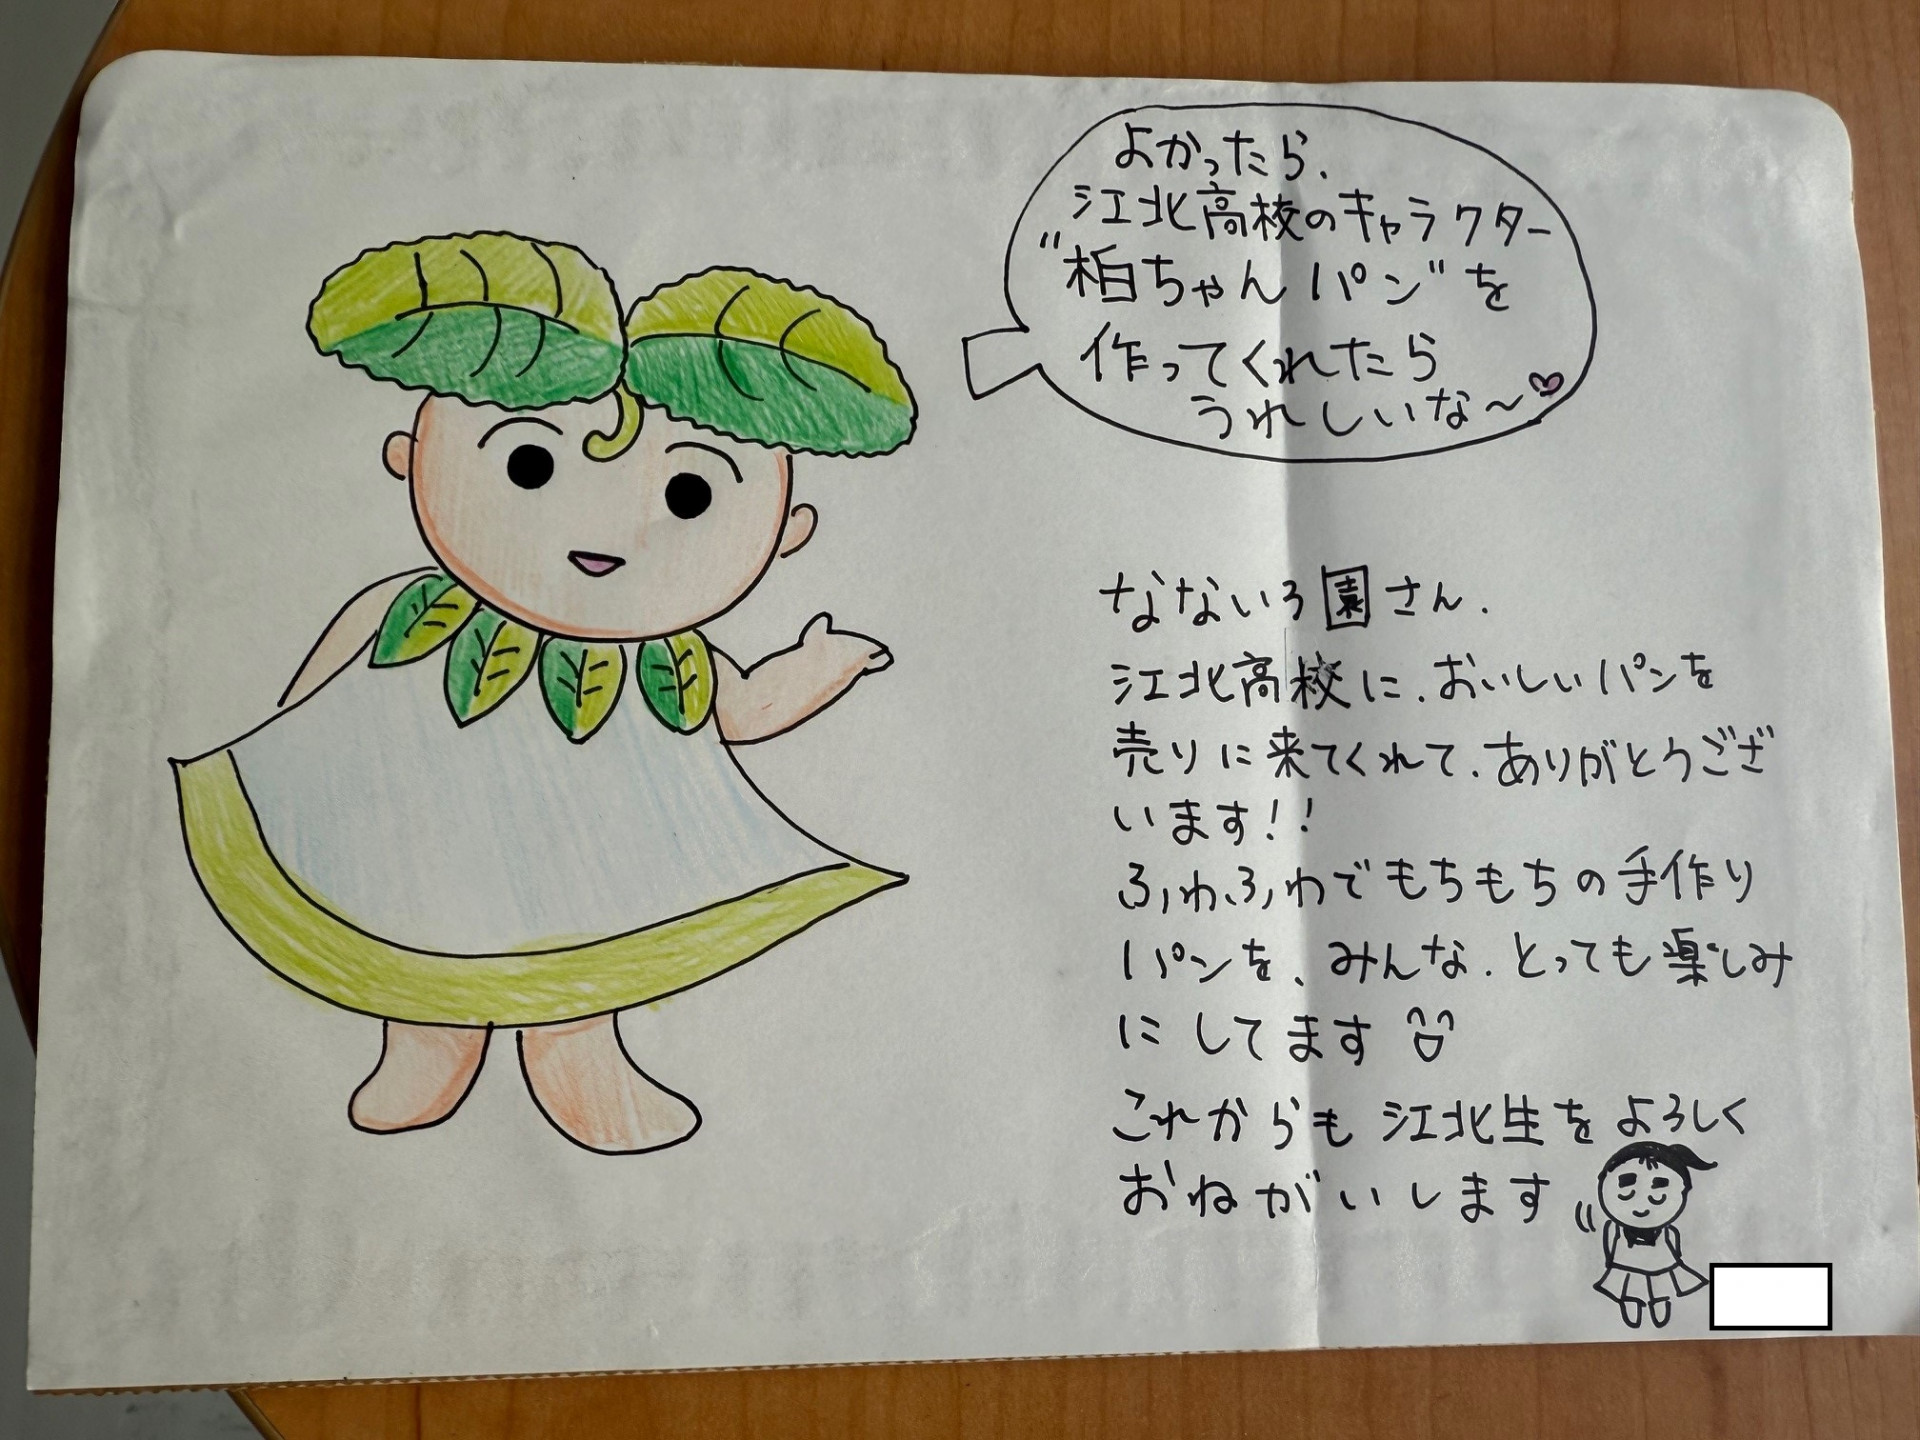 よかったら、
江北高校のキャラクター
"柏ちゃんパン"を
作ってくれたら
うれしいな〜
なないろ園さん.
江北高校に、おいしいパンを
売りに来てくれて、ありがとうござ
います!!
ふわふわでもちもちの手作り
パンを、みんな、とっても楽しみ
にしてます
これからも江北生をよろしく
おねがいします